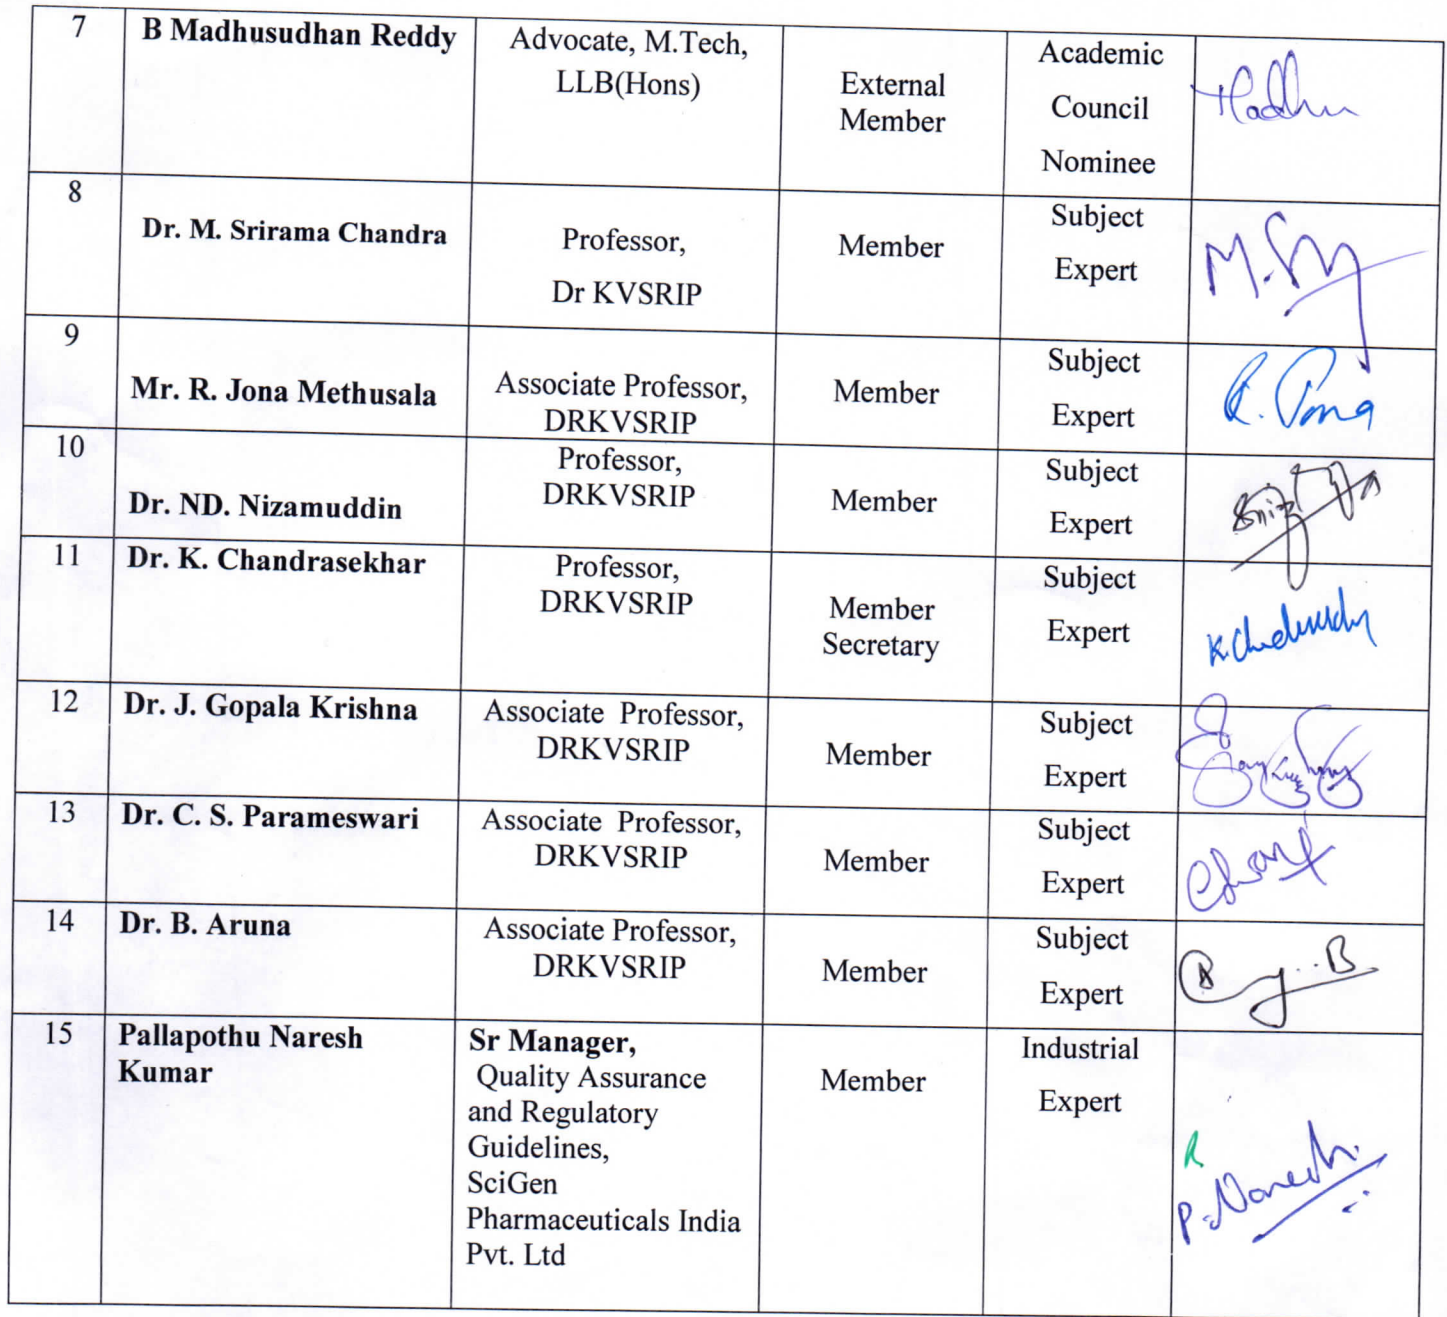 7
B Madhusudhan Reddy
Advocate, M.Tech,
LLB(Hons)
External
Member
Academic
Council
Nominee
Madhu
8
Dr. M. Srirama Chandra
Professor,
Dr KVSRIP
Member
Subject
Expert
9
Mr. R. Jona Methusala
Associate Professor,
DRKVSRIP
Member
Subject
Expert
R. Jona
10
Dr. ND. Nizamuddin
Professor,
DRKVSRIP
Member
Subject
Expert
11
Dr. K. Chandrasekhar
Professor,
DRKVSRIP
Member
Secretary
Subject
Expert
12
Dr. J. Gopala Krishna
Associate Professor,
DRKVSRIP
Member
Subject
Expert
13
Dr. C. S. Parameswari
Associate Professor,
DRKVSRIP
Member
Subject
Expert
14
Dr. B. Aruna
Associate Professor,
DRKVSRIP
Member
Subject
Expert
15
Pallapothu Naresh
Kumar
Sr Manager,
Quality Assurance
and Regulatory
Guidelines,
SciGen
Pharmaceuticals India
Pvt. Ltd
Member
Industrial
Expert
P. Naresh